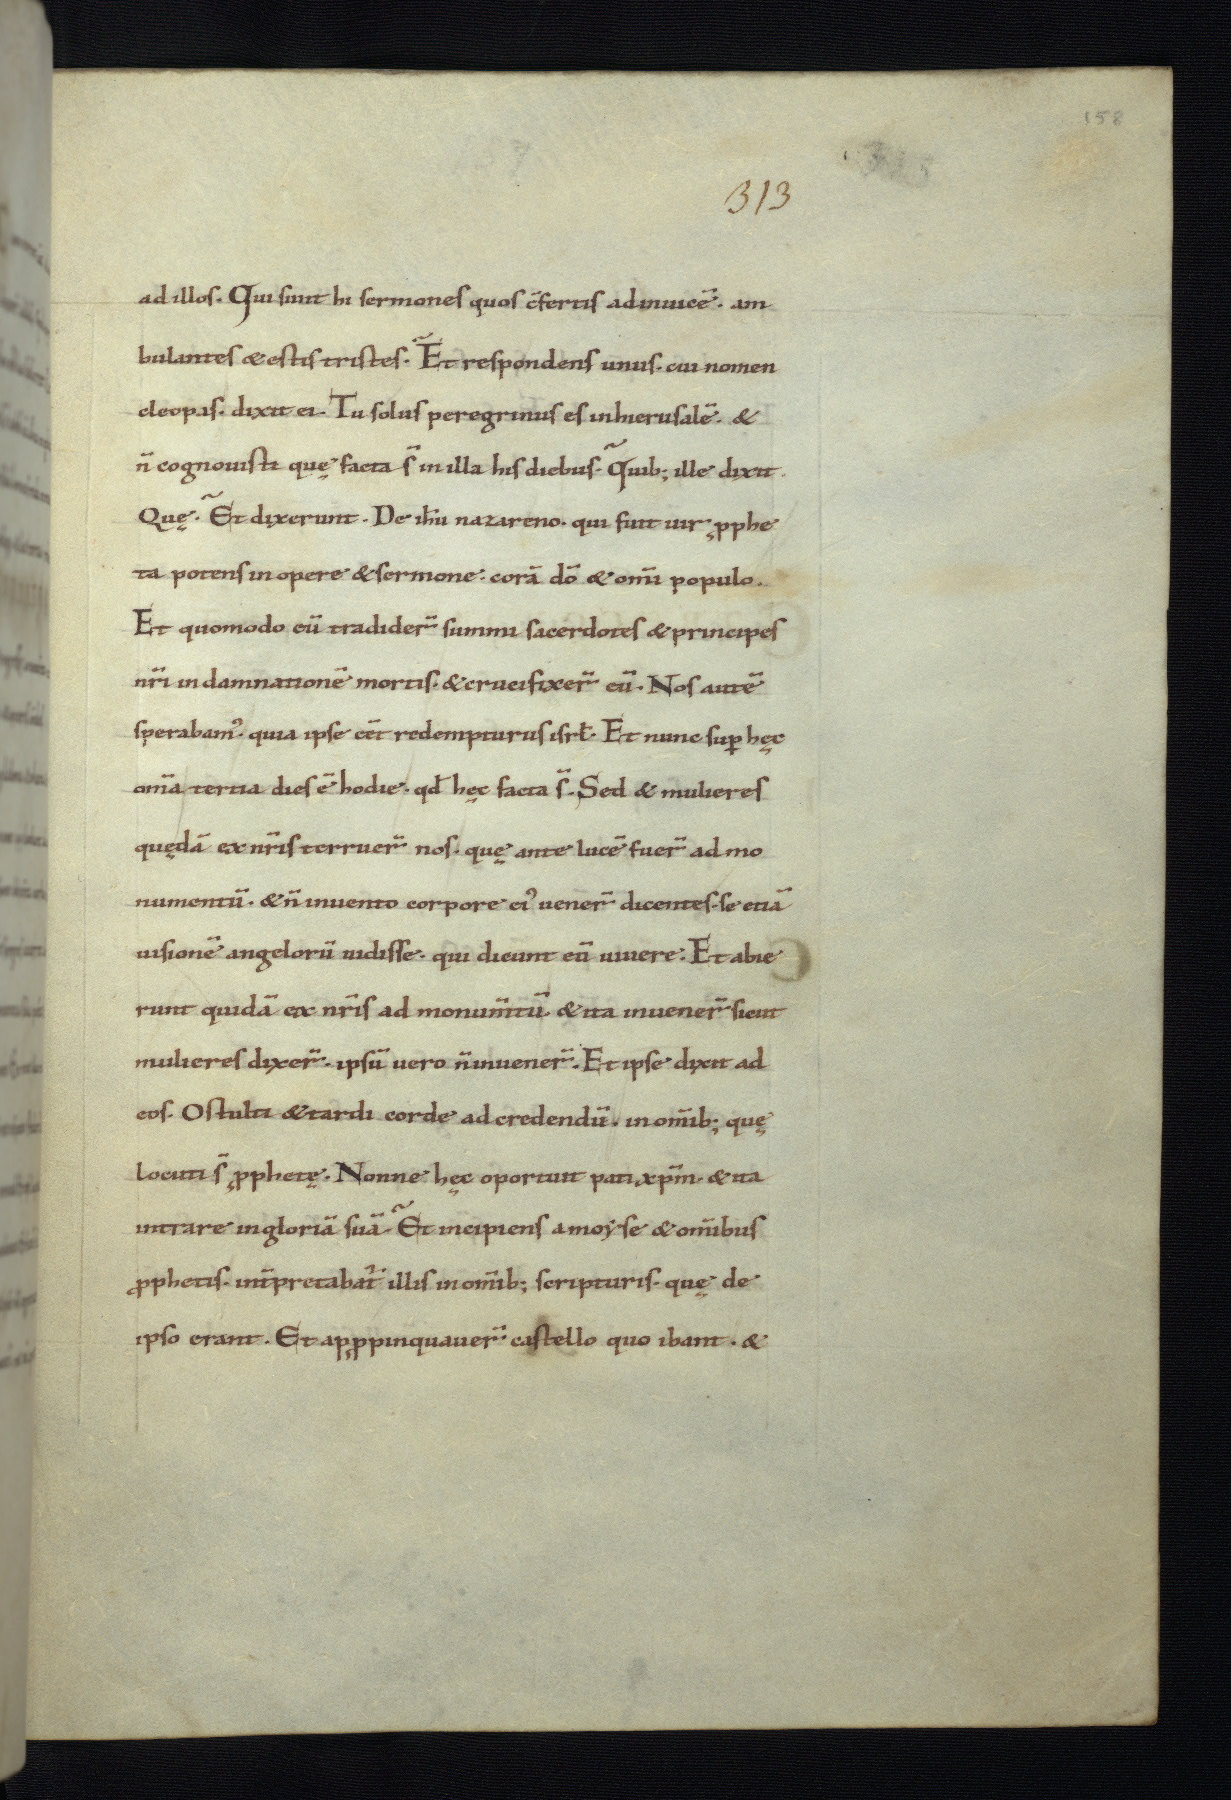 158
313
ad illos. Qui sunt hi sermones quos c̄fertis adinuicē. am
bulantes & estis tristes. Et respondens unus. cui nomen
cleopas. dixit ei. Tu solus peregrinus es inhierusalē. &
n̄ cognouisti quę facta s̄ in illa his diebus. Quib; ille dixit.
Quę. Et dixerunt. De ih̄u nazareno. qui fuit uir ꝓphe
ta potens in opere & sermone. corā dō & om̄i populo.
Et quomodo eū tradider̄ summi sacerdotes & principes
nr̄i in damnationē mortis. & crucifixer̄ eū. Nos autē
sperabamꝰ. quia ipse eēt redempturus isrł. Et nunc suꝑ hęc
om̄a tertia dies ē hodie. qd̄ hęc facta s̄. Sed & mulieres
quędā ex nr̄is terruer̄ nos. quę ante lucē fuer̄ ad mo
numentū. & n̄ inuento corpore eiꝰ uener̄ dicentes. se etiā
uisionē angelorū uidisse. qui dicunt eū uiuere. Et abie
runt quidā ex nr̄is ad monum̄tū. & ita inuener̄ sicut
mulieres dixer̄. ipsū uero n̄ inuener̄. Et ipse dixit ad
eos. O stulti & tardi corde ad credendū. in om̄ib; quę
locuti s̄ ꝓphetę. Nonne hęc oportuit pati xp̄m. & ita
intrare in gloriā suā. Et incipiens a moẏse & om̄ibus
ꝓphetis. int̄pretabat᷑ illis in om̄ib; scripturis. quę de
ipso erant. Et apꝓpinquauer̄ castello quo ibant. &